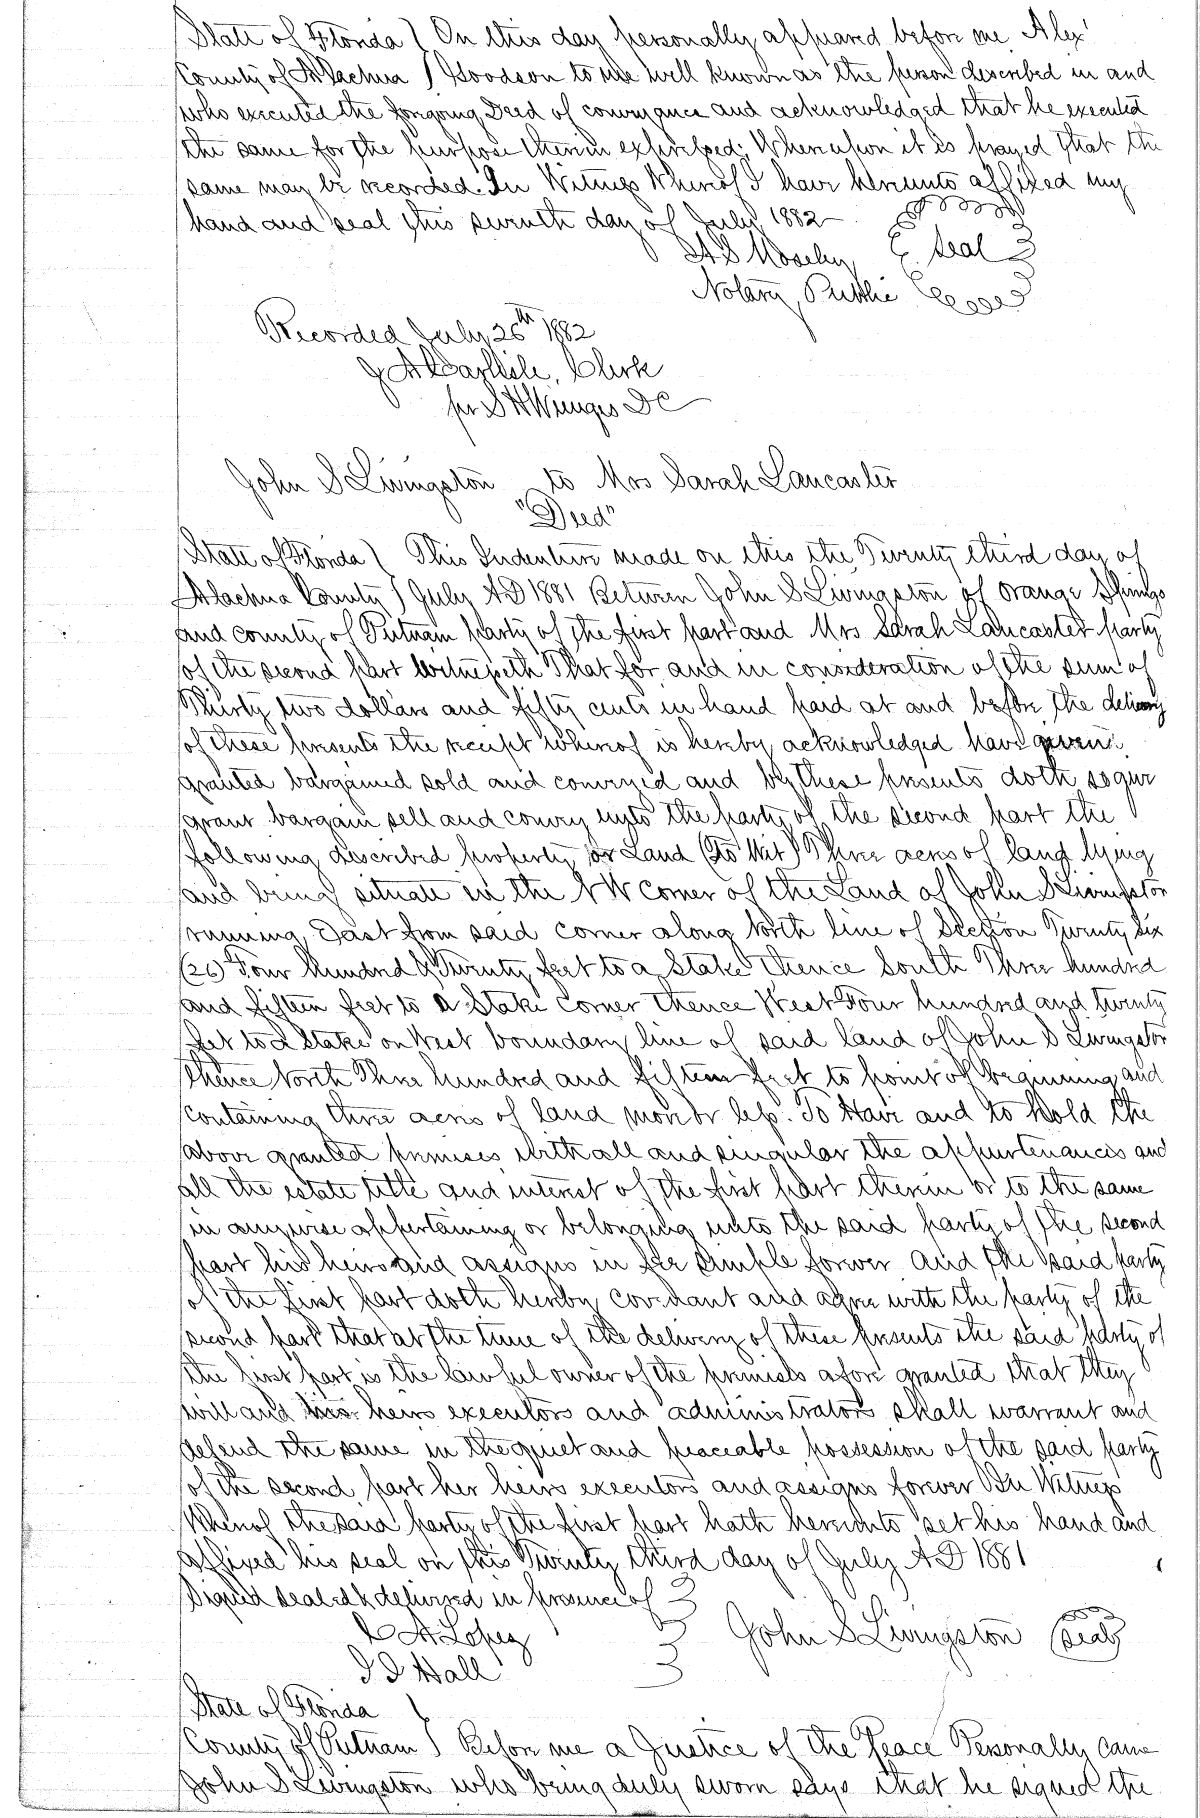 State of Florida } On this day personally appeared before me Alex
County of Alachua } Goodson to me well known as the person described in and
who executed the foregoing Deed of conveyance and acknowledged that he executed
the same for the purpose therein expressed; Whereupon it is prayed that the
same may be recorded. In Witness Whereof I have hereunto affixed my
hand and seal this seventh day of July 1882
A S Moseley Seal
Notary Public
Recorded July 26th 1882
J A Carlisle, Clerk
pr S H Wienges DC
John S Livingston to Mrs Sarah Lancaster
"Deed"
State of Florida } This Indenture made on this the Twenty third day of
Alachua County } July AD 1881 Between John S Livingston of Orange Springs
and county of Putnam party of the first part and Mrs Sarah Lancaster party
of the second part Witnesseth That for and in consideration of the sum of
Thirty two dollars and fifty cents in hand paid at and before the delivery
of these presents the receipt whereof is hereby acknowledged have given
granted bargained sold and conveyed and by these presents doth
grant bargain sell and convey unto the party of the second part the
following described property or Land (To Wit) Three acres of land lying
and being situate in the NW corner of the Land of John S Livingston
running East from said corner along North line of Section Twenty Six
(26) Four Hundred & Twenty feet to a Stake thence South Three hundred
and fifteen feet to a Stake Corner thence West Four hundred and twenty
feet to a Stake on West boundary line of said land of John S Livingston
thence North Three hundred and fifteen feet to point of beginning and
containing three acres of land more or less. To Have and to hold the
above granted premises with all and singular the appurtenances and
all the estate title and interest of the first part therein or to the same
in anywise appertaining or belonging unto the said party of the second
part his heirs and assigns in fee simple forever And the said party
of the first part doth hereby covenant and agree with the party of the
second part that at the time of the delivery of these presents the said party of
the first part is the lawful owner of the premises afore granted that they
will and his heirs executors and administrators shall warrant and
defend the same in the quiet and peaceable possession of the said party
of the second part her heirs executors and assigns forever In Witness
Whereof the said party of the first part hath hereunto set his hand and
affixed his seal on this Twenty third day of July AD 1881
Signed sealed & delivered in presence of
A Lopez John S Livingston Seal
Hall
State of Florida }
County of Putnam } Before me a Justice of the Peace Personally came
John S Livingston who being duly sworn says that he signed the